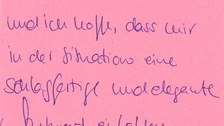 und ich hoffe, dass mir
in der Situation eine
schlagfertige und elegante